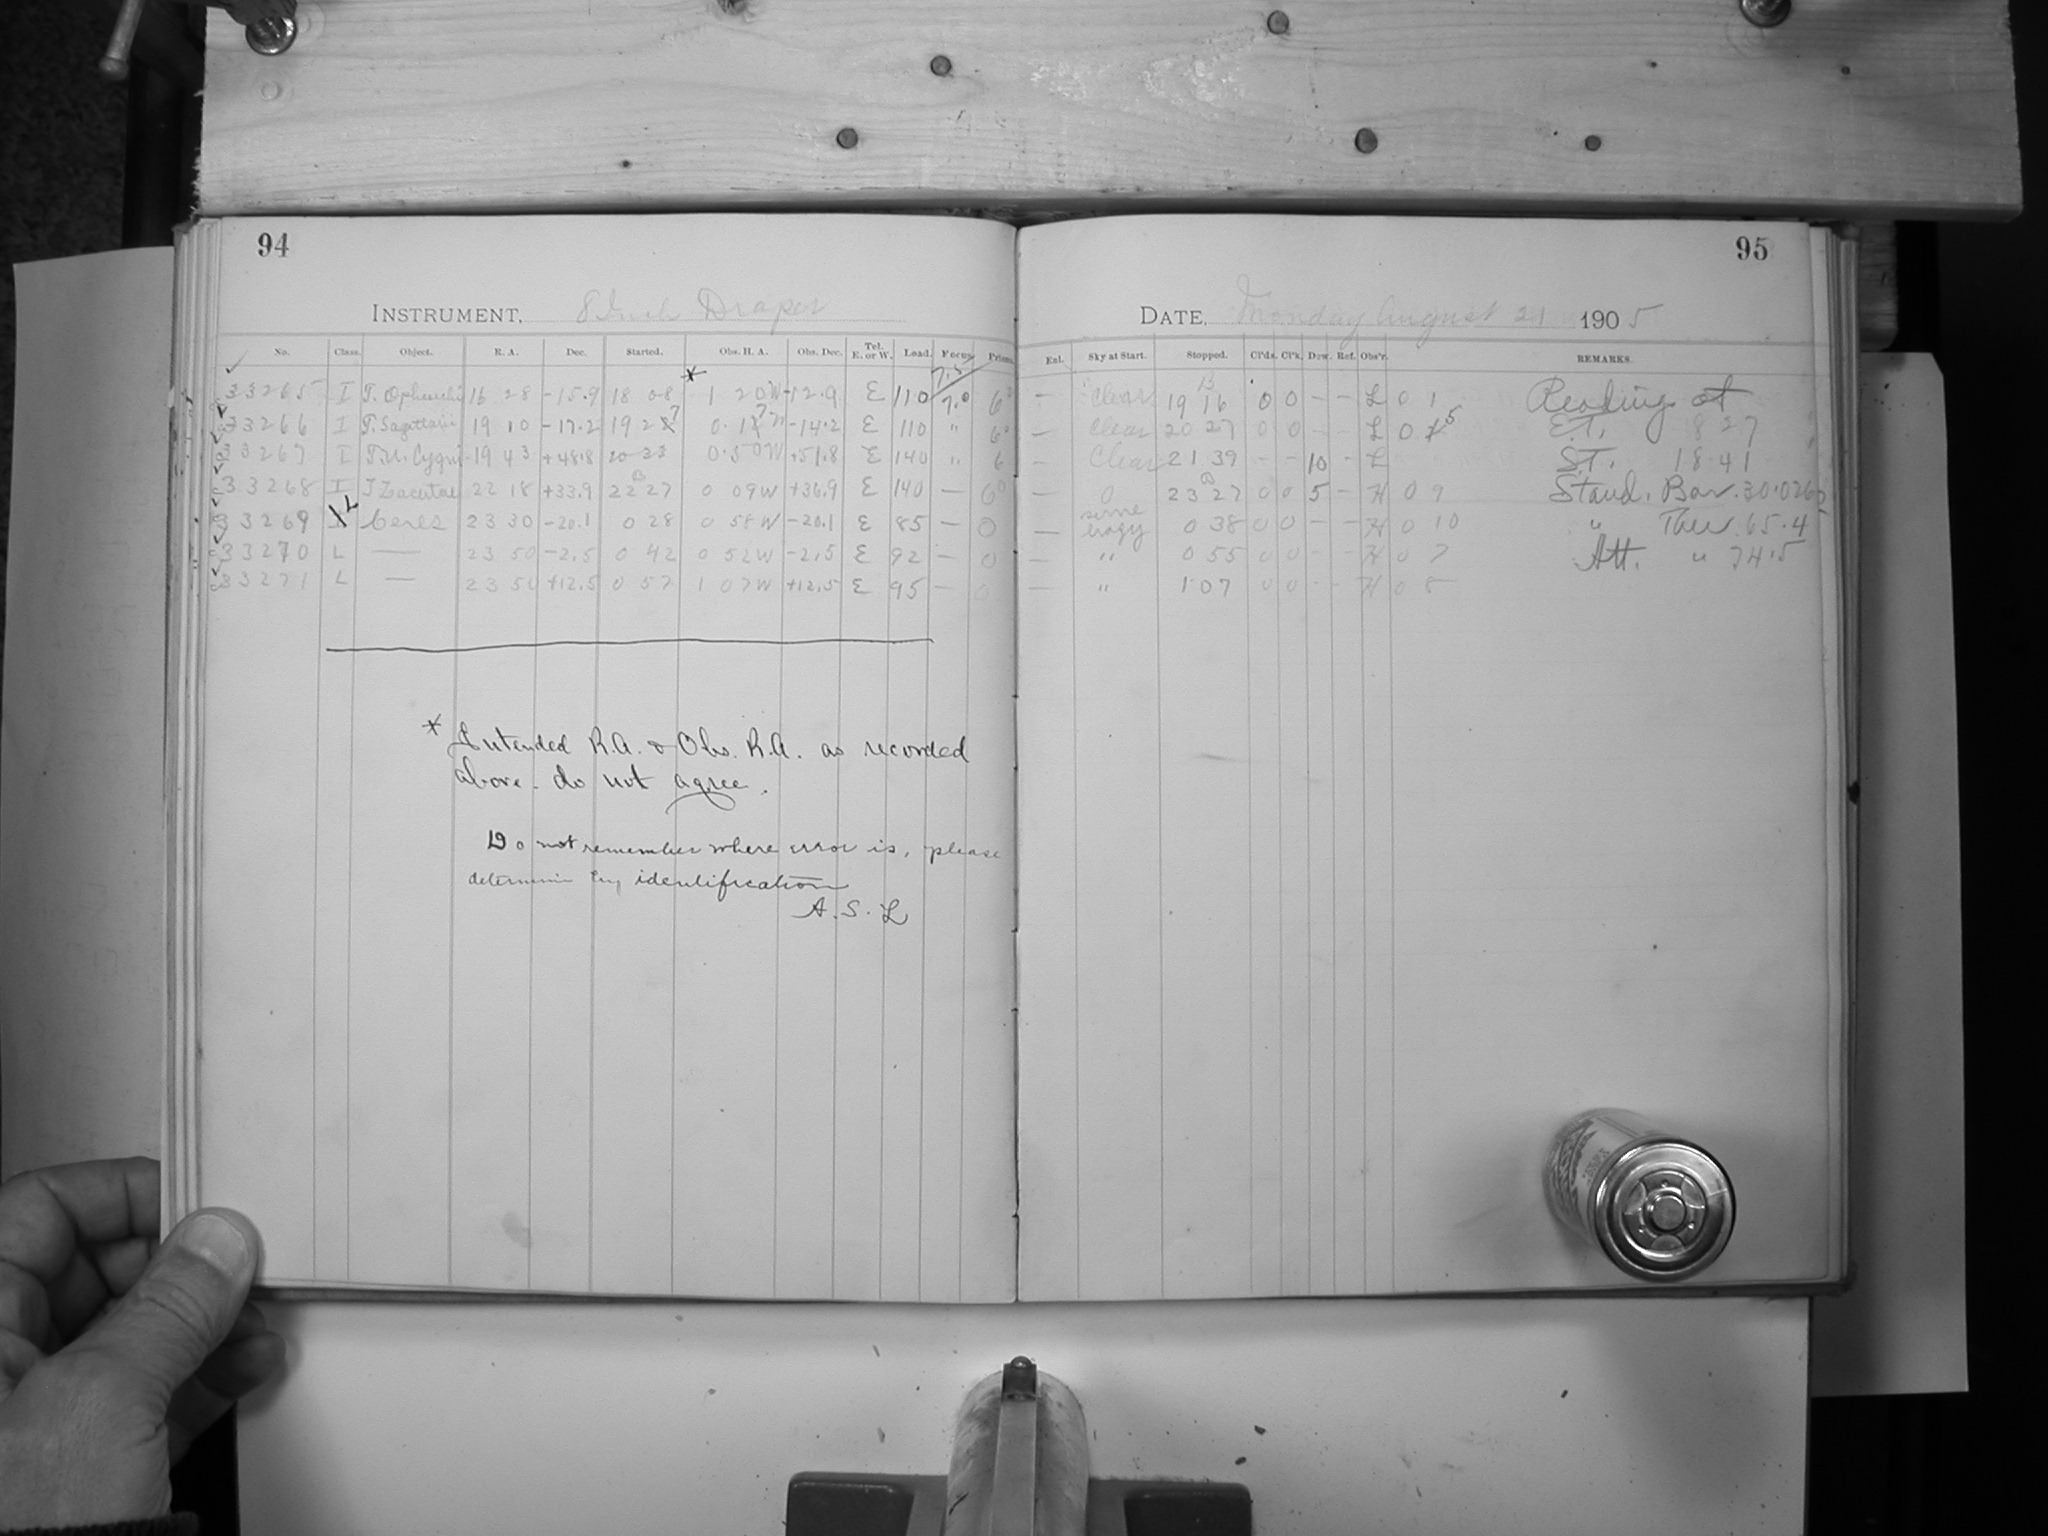 94
95
INSTRUMENT, 8 Inch Draper
DATE, Monday August 21 1905
No. Class. Object. R. A. Dec. Started. Obs. H. A. Obs. Dec. Tel. E. or W. Load. Focus. Prism.
Ent. Sky at Start. Stopped. Cl'ds. Cl'k. Dew. Ref. Obs'r. REMARKS.
*
7.5
33265 I T. Ophiuchi 16 28 -15.9 18 08 1 20W -12.9 E 110 7.0 6°
— Clear 19 16 0 0 - - L 0 1 Reading at
33266 I T. Sagittarii 19 10 -17.2 19 2 7 0.1 7 W -14.2 E 110 " 6°
— Clear 20 27 0 0 - - L 0 5 E.T. 8 27
33267 I T.U. Cygni 19 43 +48.8 20 33 0.50W +51.8 E 140 " 6
— Clear 21 39 - - 10 - L S.T. 18.41
33268 I T Lacertae 22 18 +33.9 22 27 0 09W +36.9 E 140 — 6°
— 0 23 27 0 0 5 - H 0 9 Stand. Bar. 30.026
33269 L Ceres 23 30 -20.1 0 28 0 58W -20.1 E 85 — 0
— some hazy 0 38 0 0 - - H 0 10 " Ther. 65.4
33270 L — 23 50 -2.5 0 42 0 52W -2.5 E 92 — 0
— " 0 55 0 0 - - H 0 7 Att. " 74.5
33271 L — 23 50 +12.5 0 57 1 07W +12.5 E 95 — 0
— " 1 07 0 0 - - H 0 8
* Intended R.A. & Obs. R.A. as recorded
above do not agree.
Do not remember where error is, please
determine by identification
A. S. L